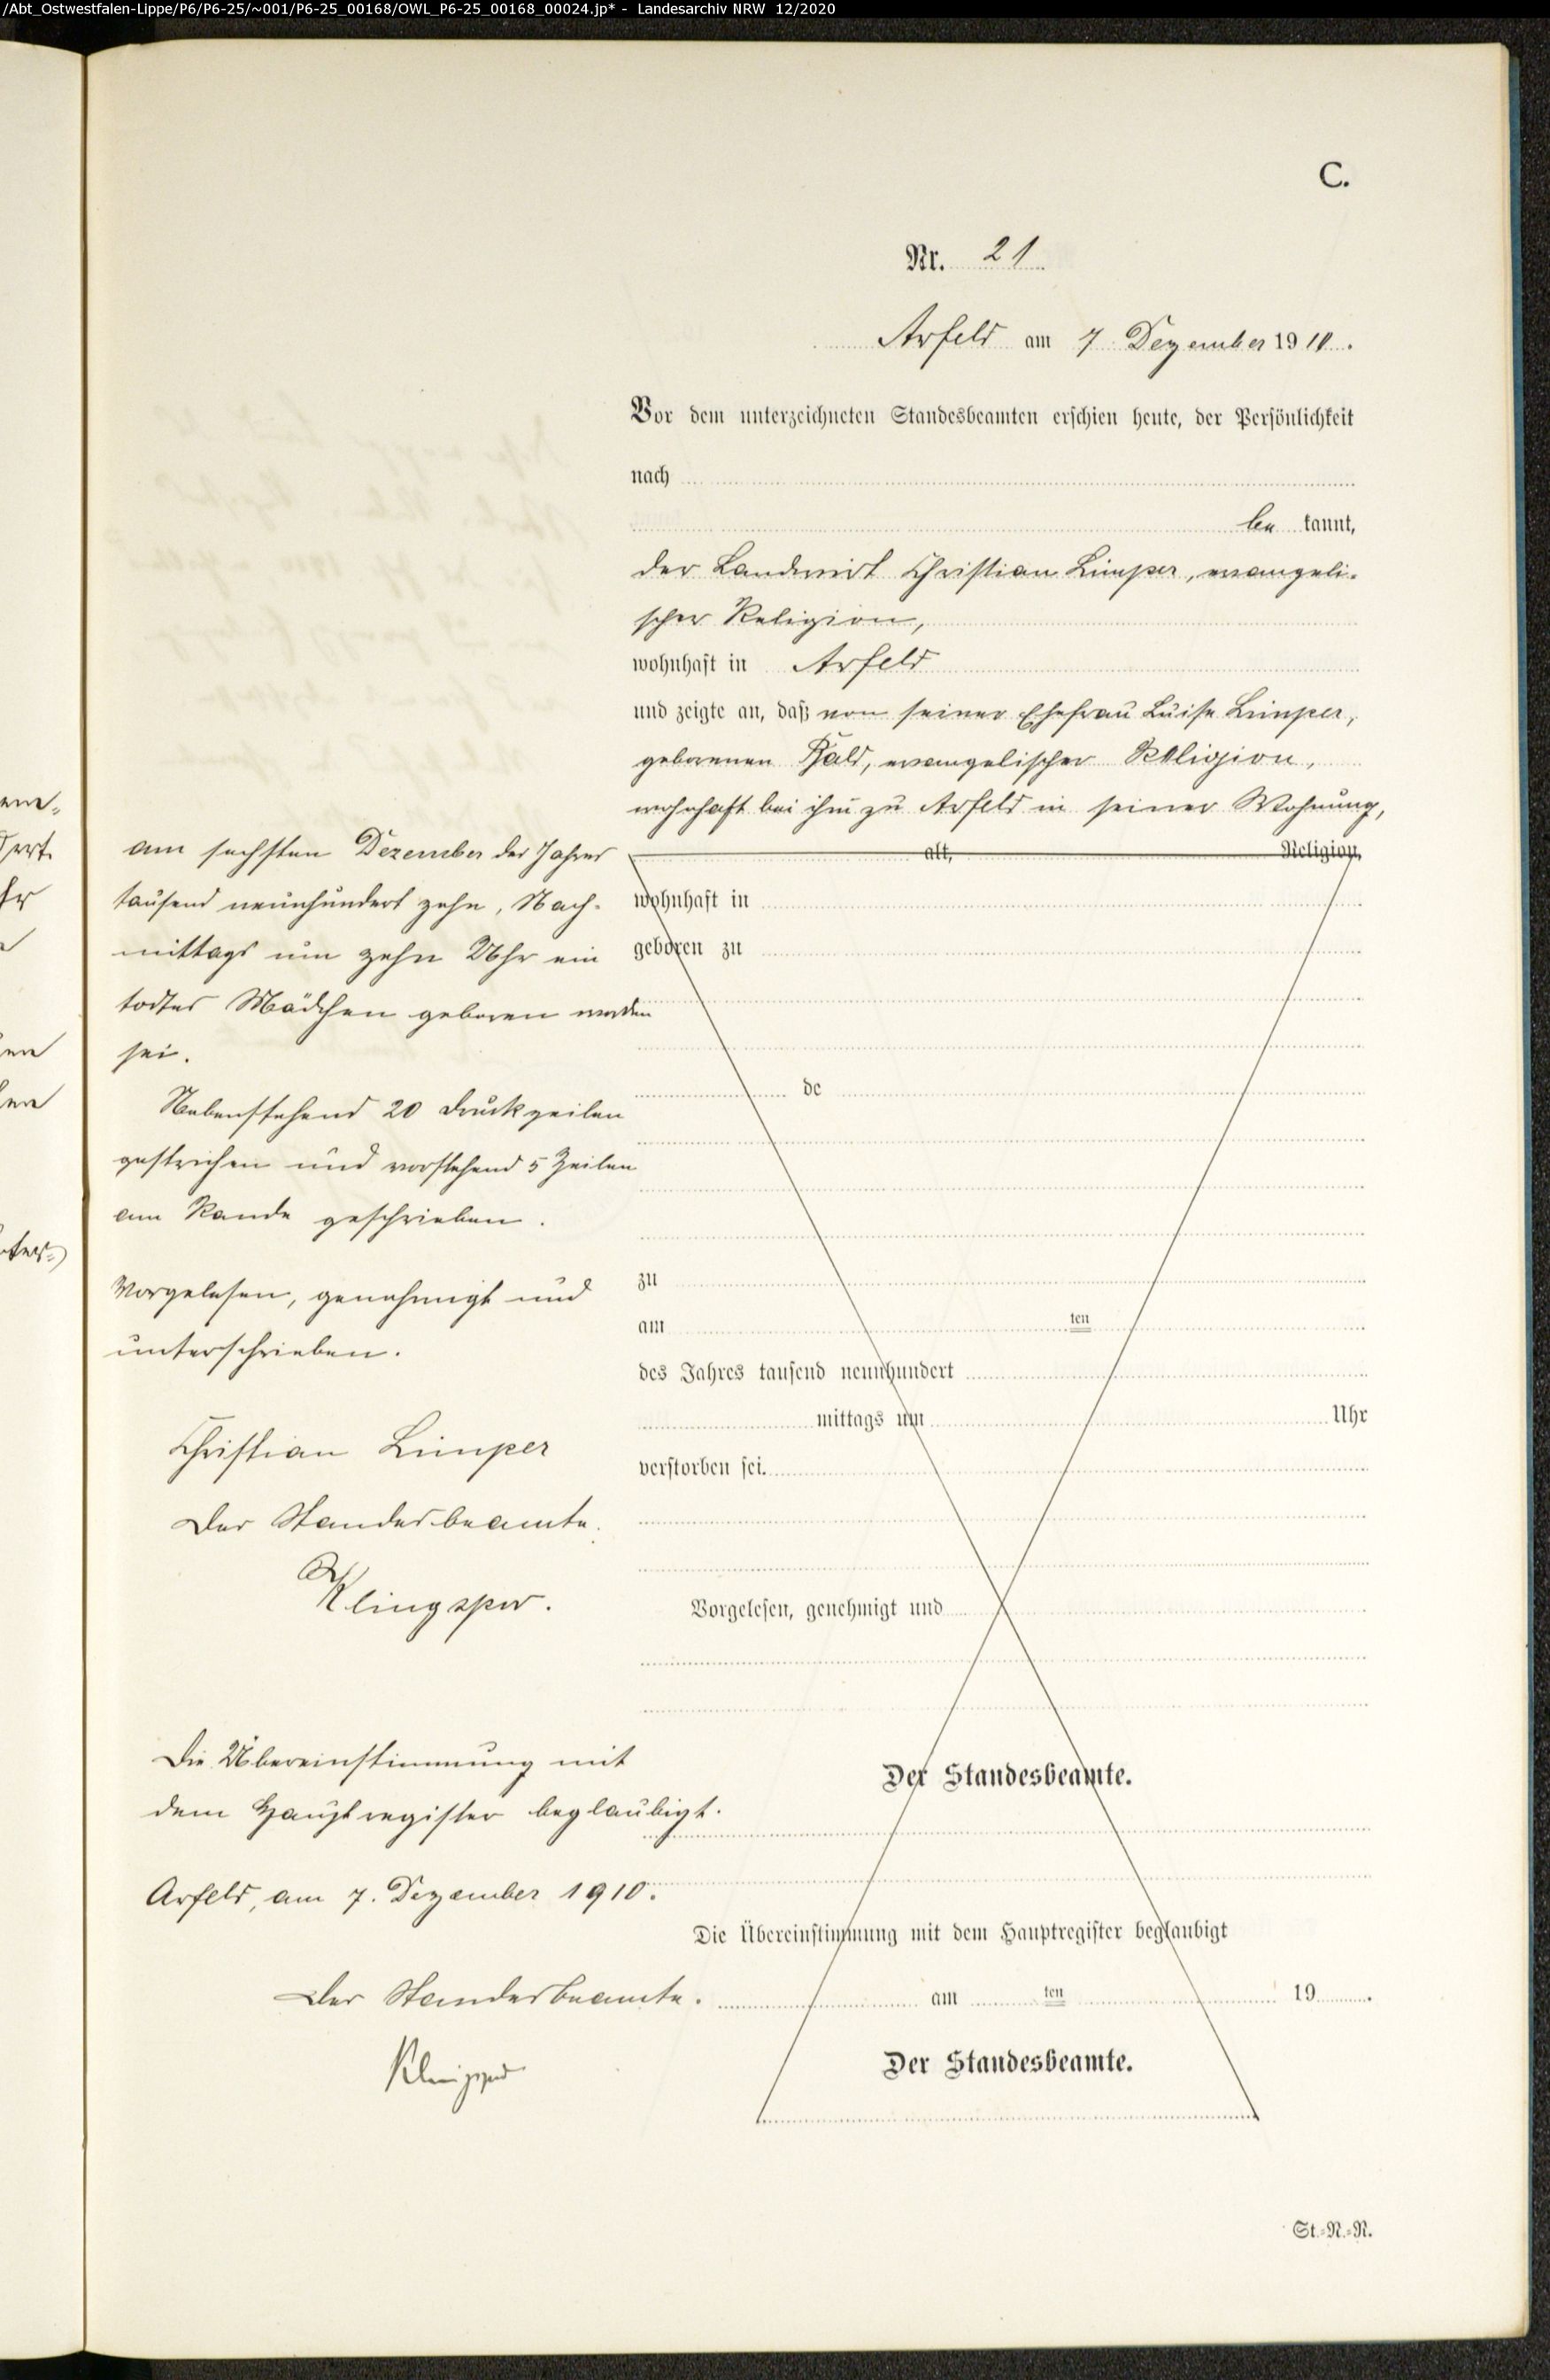 /Abt_Ostwestfalen-Lippe/P6/P6-25/~001/P6-25_00168/OWL_P6-25_00168_00024.jp* - Landesarchiv NRW 12/2020
C.
Nr. 21
Arfeld am 7. Dezember 1910.
Vor dem unterzeichneten Standesbeamten erschien heute, der Persönlichkeit
nach
be kannt,
der Landwirt Christian Limper, evangeli-
scher Religion,
wohnhaft in Arfeld
und zeigte an, daß von seiner Ehefrau Luise Limper,
geborenen evangelischer Religion,
wohnhaft bei ihm zu Arfeld in seiner Wohnung,
alt, Religion,
wohnhaft in
geboren zu
de
zu
am ten
des Jahres tausend neunhundert
mittags um Uhr
verstorben sei.
Vorgelesen, genehmigt und
Der Standesbeamte.
Die Übereinstimmung mit dem Hauptregister beglaubigt
am ten 19 .
Der Standesbeamte.
St.-N.-R.
am sechsten Dezember des Jahres
tausend neunhundert zehn, Nach-
mittags um zehn Uhr ein
todtes Mädchen geboren worden
sei.
Nebenstehend 20 Druckzeilen
gestrichen und vorstehend 5 Zeilen
am Rande geschrieben.
Vorgelesen, genehmigt und
unterschrieben.
Christian Limper
Der Standesbeamte.
Klingspor.
Die Übereinstimmung mit
dem Hauptregister beglaubigt.
Arfeld, am 7. Dezember 1910.
Der Standesbeamte.
Klingspor